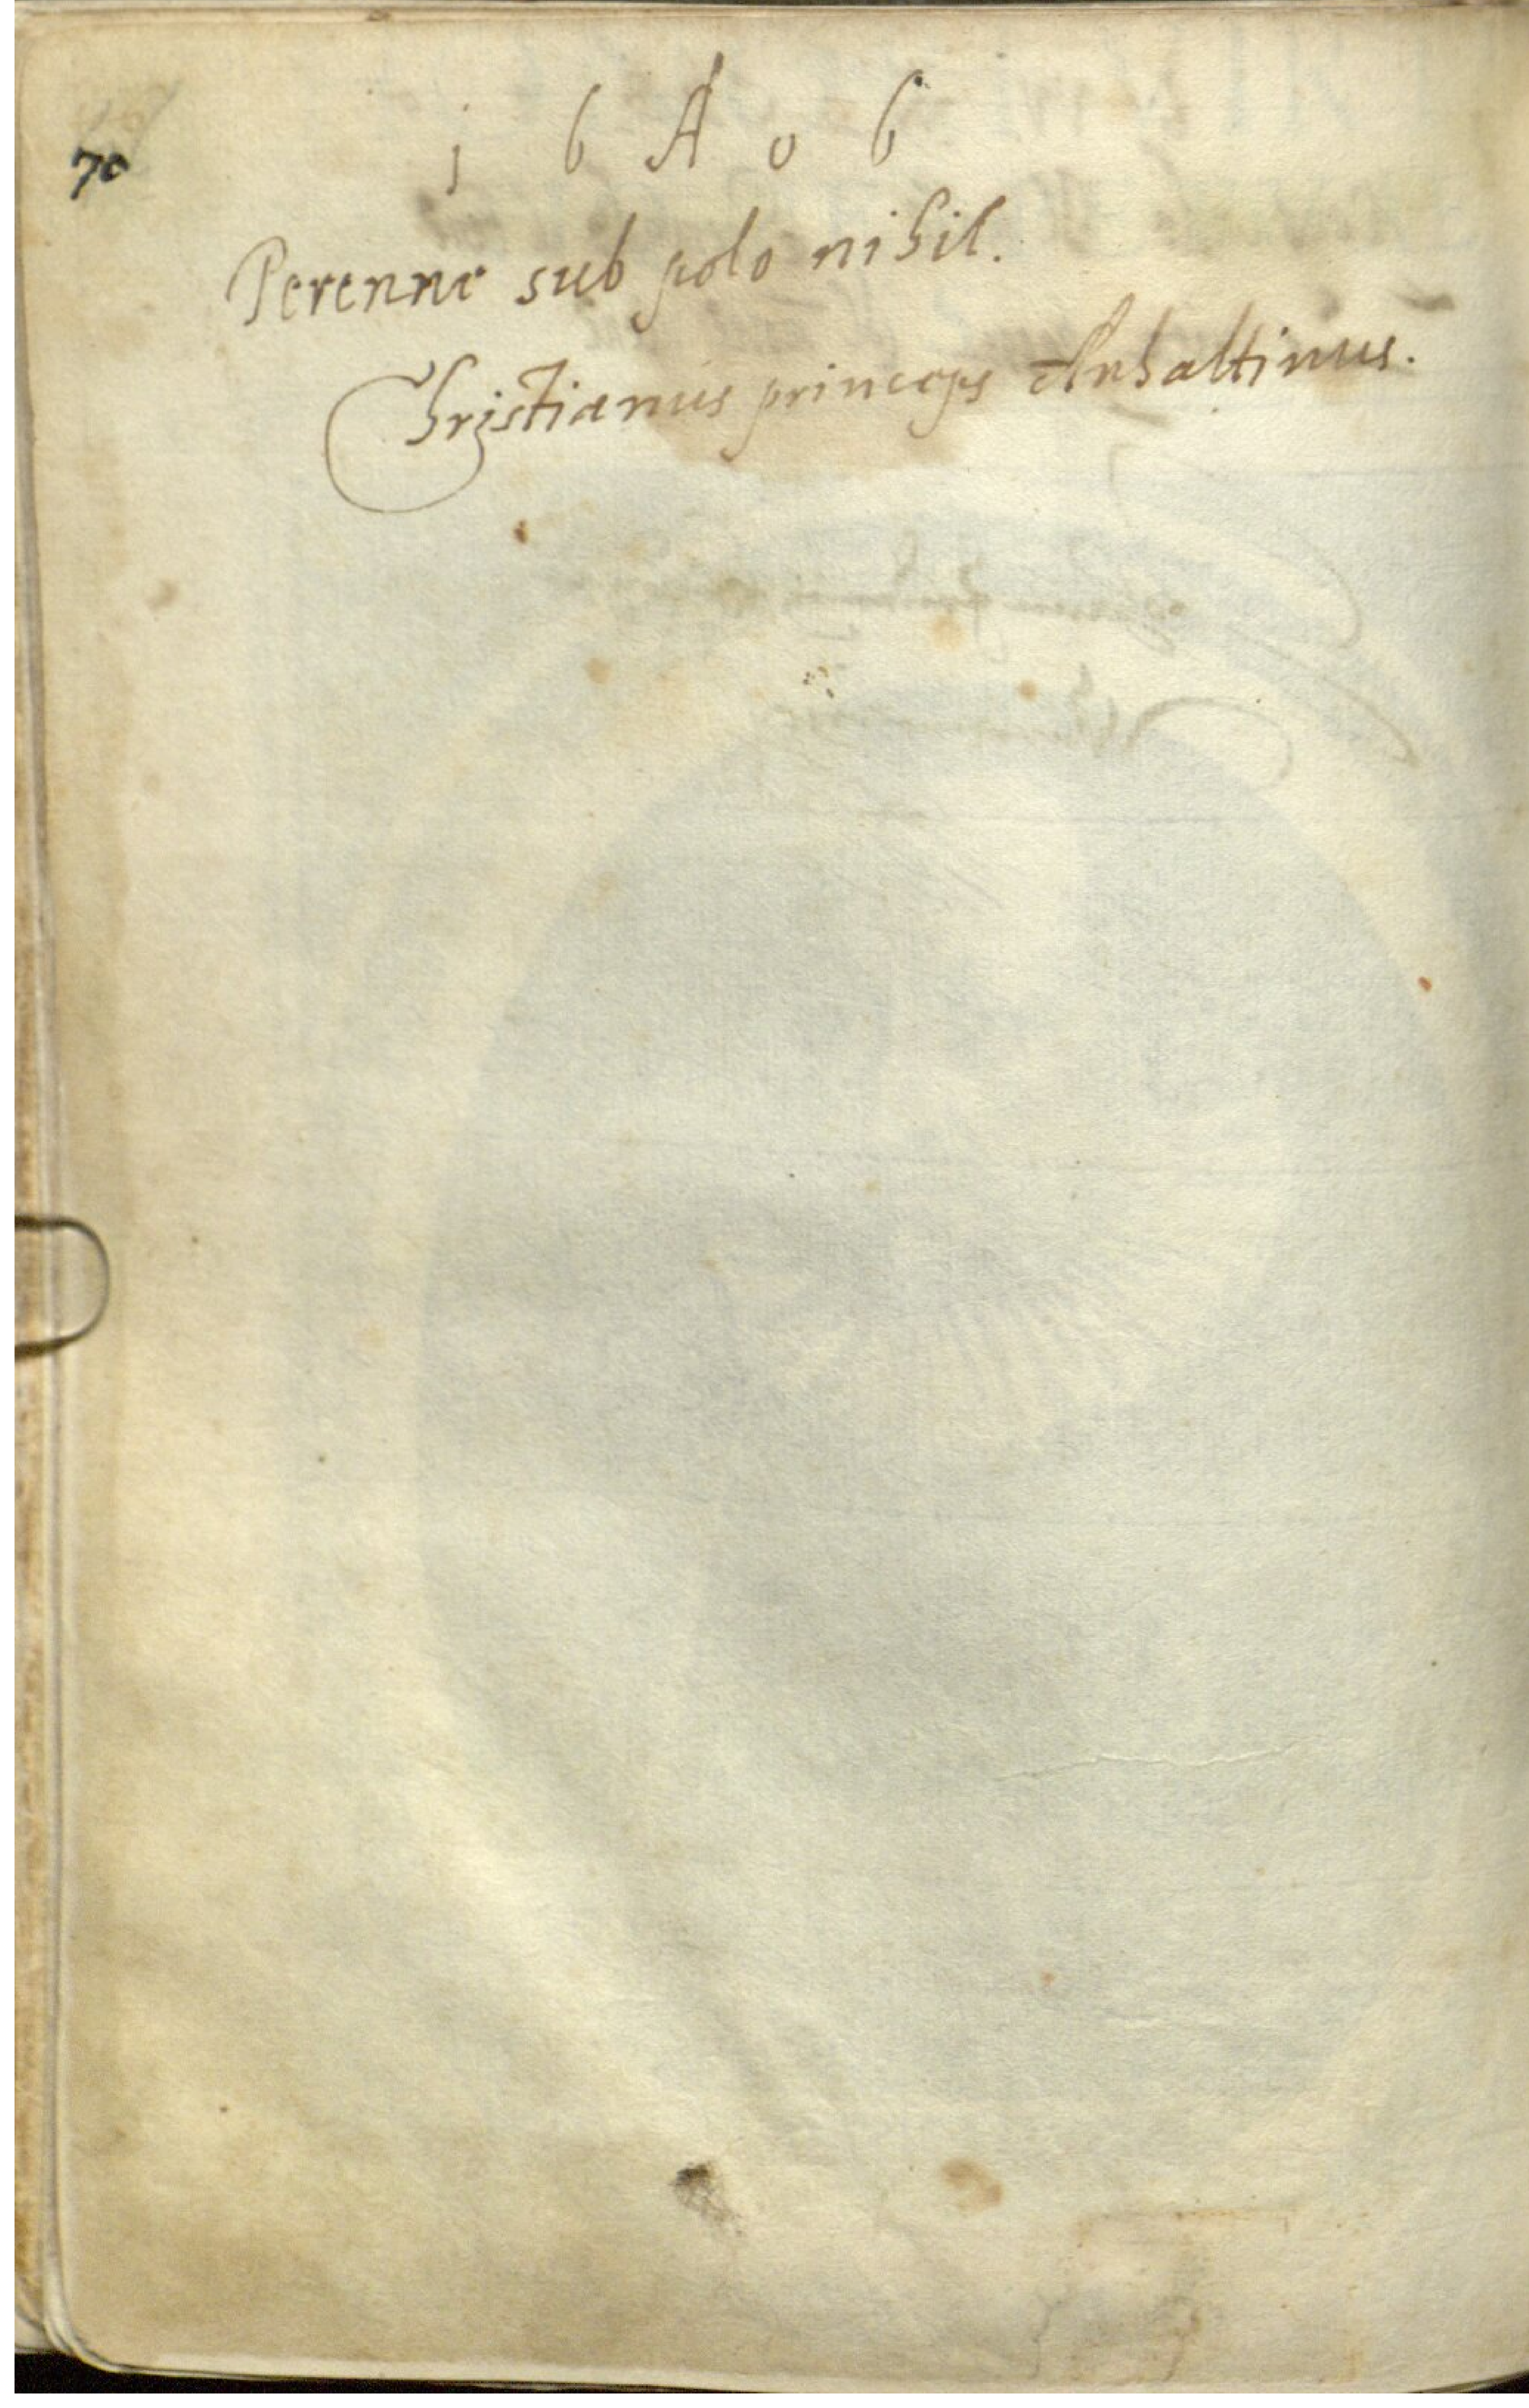 70
1 6 A 0 6
Perenne sub polo nihil.
Christianus princeps Anhaltinus.